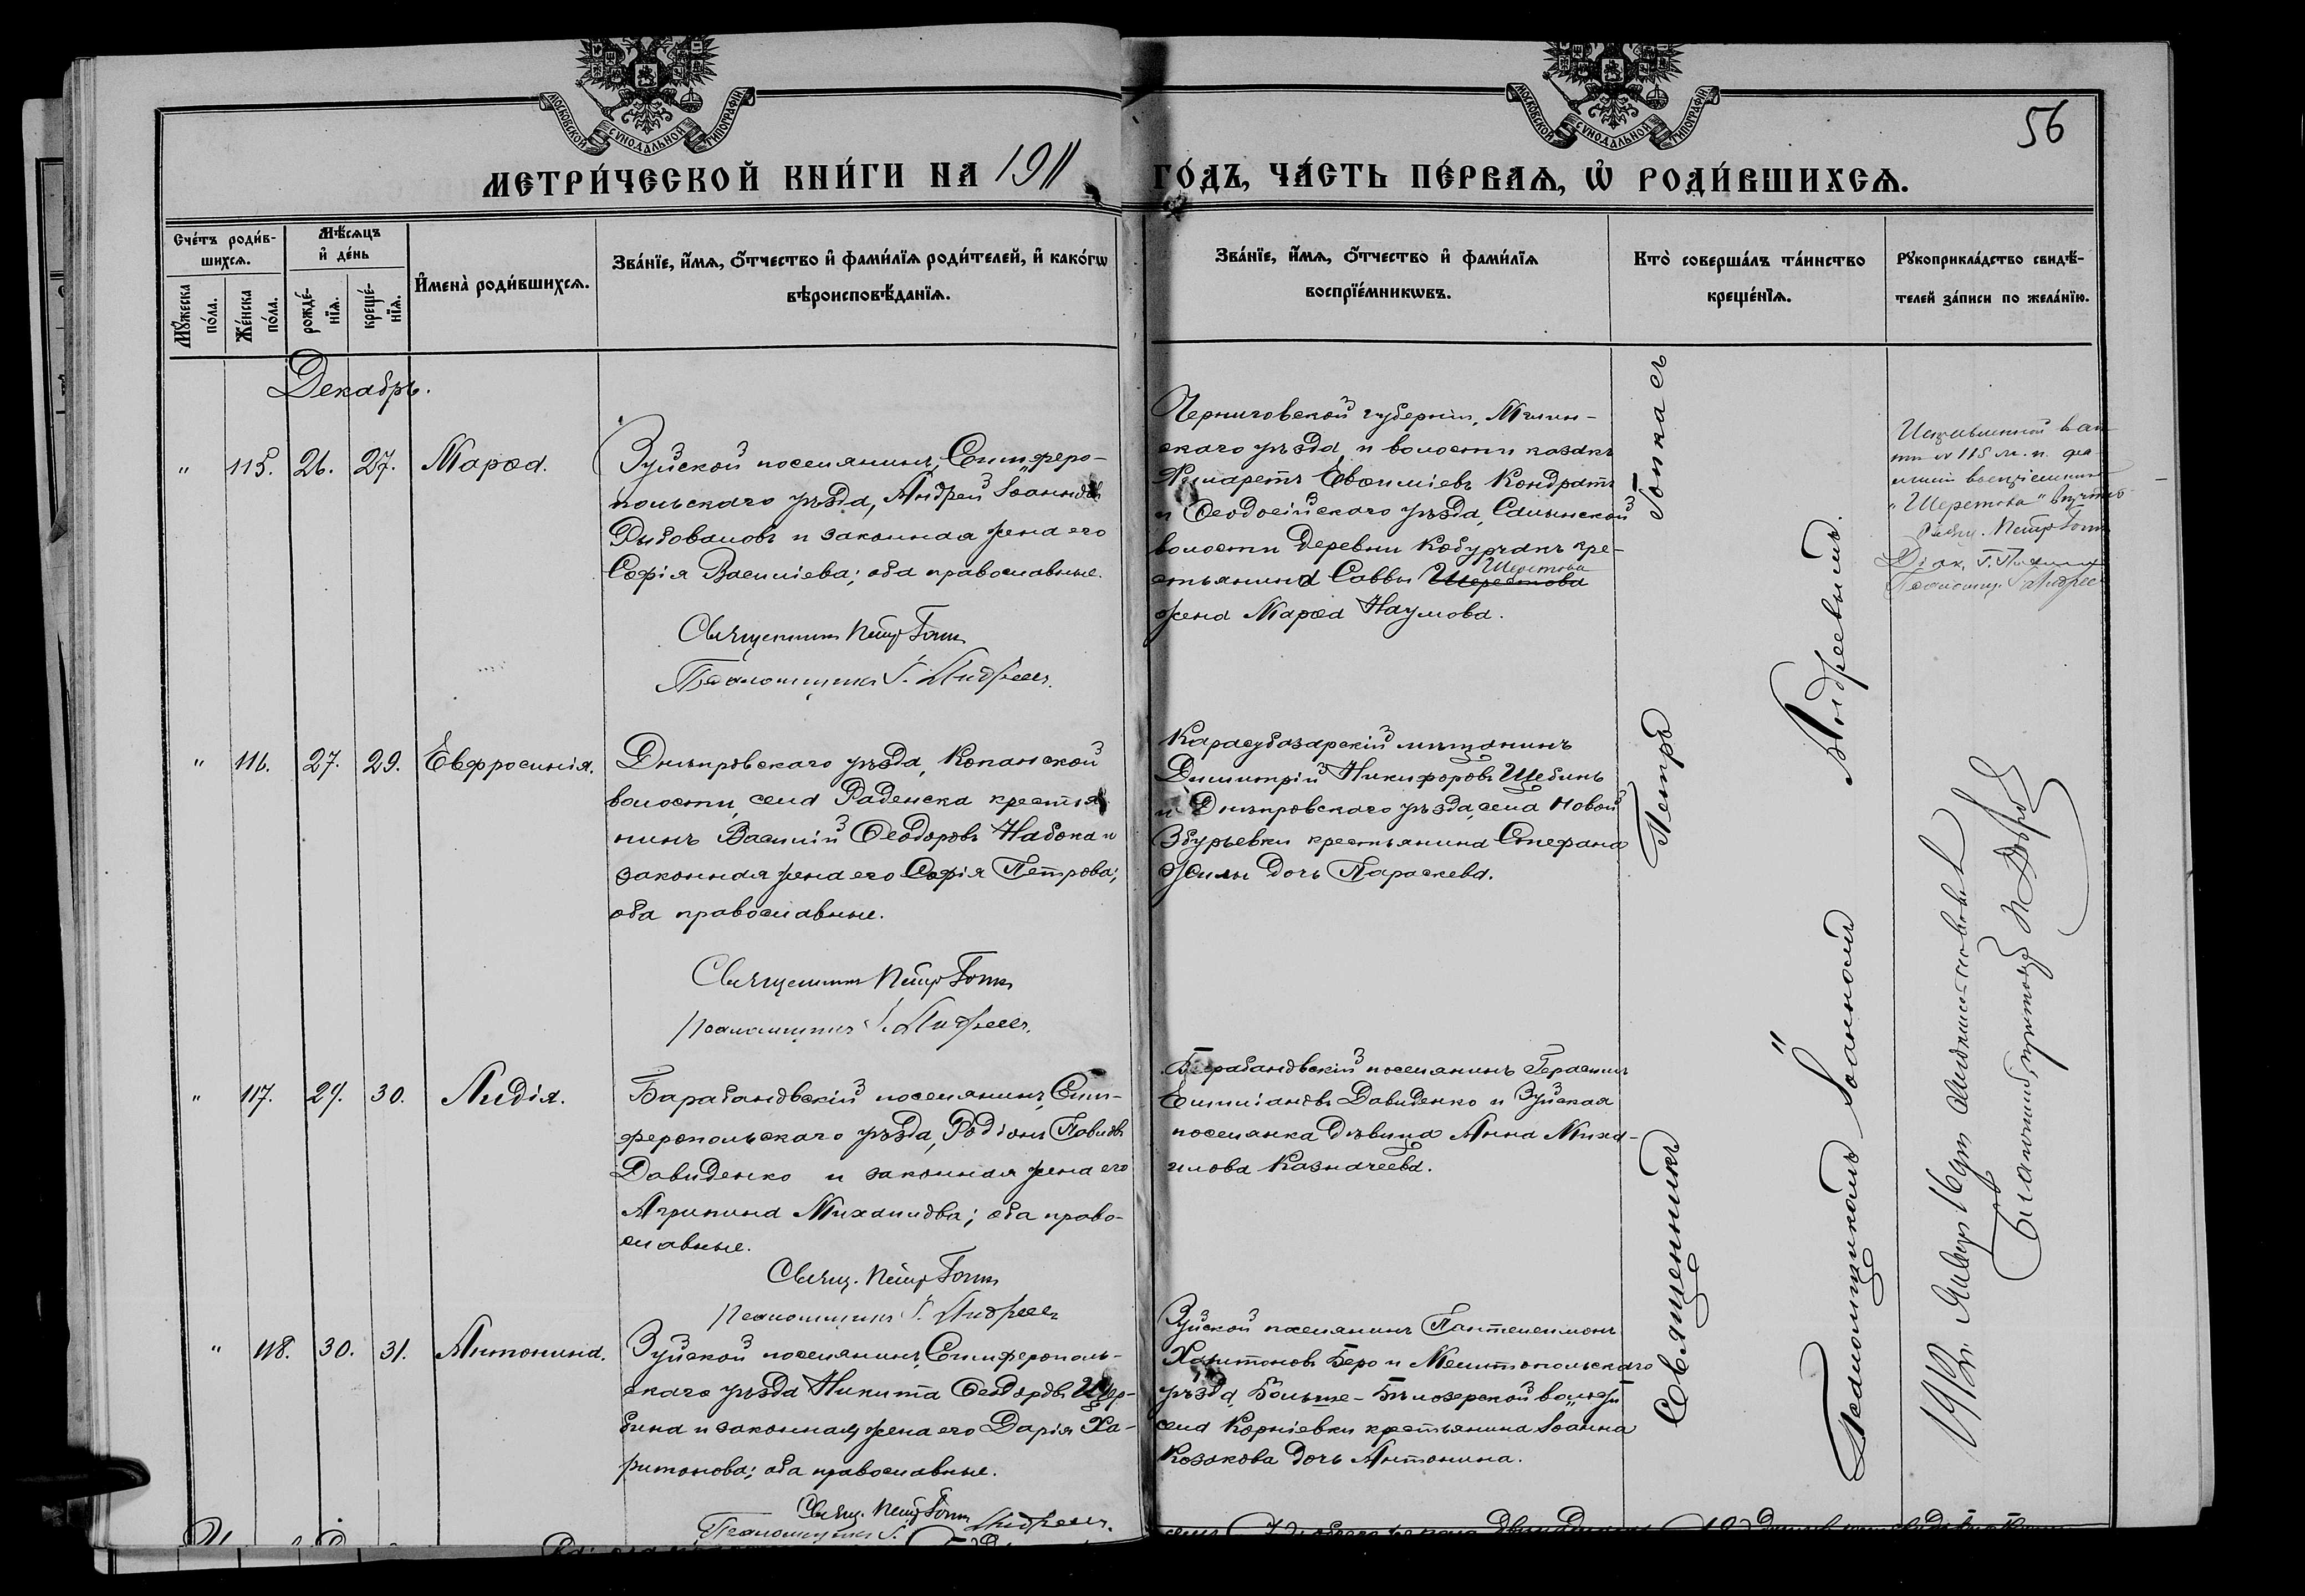 МОСКОВСКОЙ СѴНОДАЛЬНОЙ ТИПОГРАФІИ
МОСКОВСКОЙ СѴНОДАЛЬНОЙ ТИПОГРАФІИ
56
МЕТРИ́ЧЕСКОЙ КНИ́ГИ НА 1911 ГО́ДЪ, ЧА́СТЬ ПЕ́РВАѦ, Ѡ҆ РОДИ́ВШИХСѦ.
Сче́тъ роди́в-
шихсѧ.
Мꙋ́жеска по́ла.
Же́нска по́ла.
Мѣ́сѧцъ
и҆ де́нь
рожде́-
нїѧ.
креще́-
нїѧ.
И҆мена̀ роди́вшихсѧ.
Зва́нїе, и҆́мѧ, ѻ҆́тчество и҆ фами́лїѧ роди́телей, и҆ како́гѡ
вѣроисповѣ́данїѧ.
Зва́нїе, и҆́мѧ, ѻ҆́тчество и҆ фами́лїѧ
воспрїе́мникѡвъ.
Кто̀ соверша́лъ та́инство
креще́нїѧ.
Рꙋкоприкла́дство свидѣ́-
телей за́писи по жела́нїю.
Декабрь.
" 115. 26. 27. Марѳа.
Зуйской поселянинъ, Симферо-
польскаго уѣзда, Андрей Іоанновъ
Рыбоваловъ и законная жена его
Софія Василіева; оба православные.
Священникъ Петръ
Псаломщикъ І. Андреевъ.
Черниговской губерніи, Мглин-
скаго уѣзда и волости козакъ
Филаретъ Евѳиміевъ Кондратъ
и Ѳеодосійскаго уѣзда, Салынской
волости деревни Кобурчакъ кре-
Шеремова
стьянина Саввы Шерестова
жена Марѳа Наумова.
Исправленной
№ 115 ж. п. фа-
миліи воспріемницы
"Шеремова" вѣрить
Свящ. Петръ
Псаломщ. І. Андрее
" 116. 27. 29. Евфросинія.
Днѣпровскаго уѣзда, Копанской
волости, села Раденска крестья-
нинъ Василій Ѳеодоровъ Набока и
законная жена его Софія Петрова;
оба православные.
Священникъ Петръ
Псаломщикъ І. Андреевъ.
Карасубазарскій мѣщанинъ
Димитрій Никифоровъ Щебинъ
и Днѣпровскаго уѣзда, села Новой
Збурьевки крестьянина Стефана
Жилы дочь Параскева.
" 117. 29. 30. Лидія.
Барабановскій поселянинъ, Сим-
феропольскаго уѣзда, Родіонъ Павловъ
Давиденко и законная жена его
Агрипина Михаилова; оба право-
славные.
Свящ. Петръ
Псаломщикъ І. Андреевъ
Барабановскій поселянинъ Герасимъ
Емиліановъ Давиденко и Зуйская
поселянка дѣвица Анна Миха-
илова Казначеева.
" 118. 30. 31. Антонина.
Зуйской поселянинъ, Симферополь-
скаго уѣзда Никита Ѳеодоровъ Щер-
бина и законная жена его Дарія Ха-
ритонова; оба православные.
Свящ. Петръ
Псаломщикъ І. Андреевъ.
Зуйской поселянинъ Пантелеимонъ
Харитоновъ Беро и Мелитопольскаго
уѣзда, Больше-Бѣлозерской волости
села Корніевки крестьянина Іоанна
Козакова дочь Антонина.
Священникъ Петръ
Псаломщикомъ Іоанномъ Андреевымъ.
1912 г. Января 16 дня
Благочинный, протоіерей